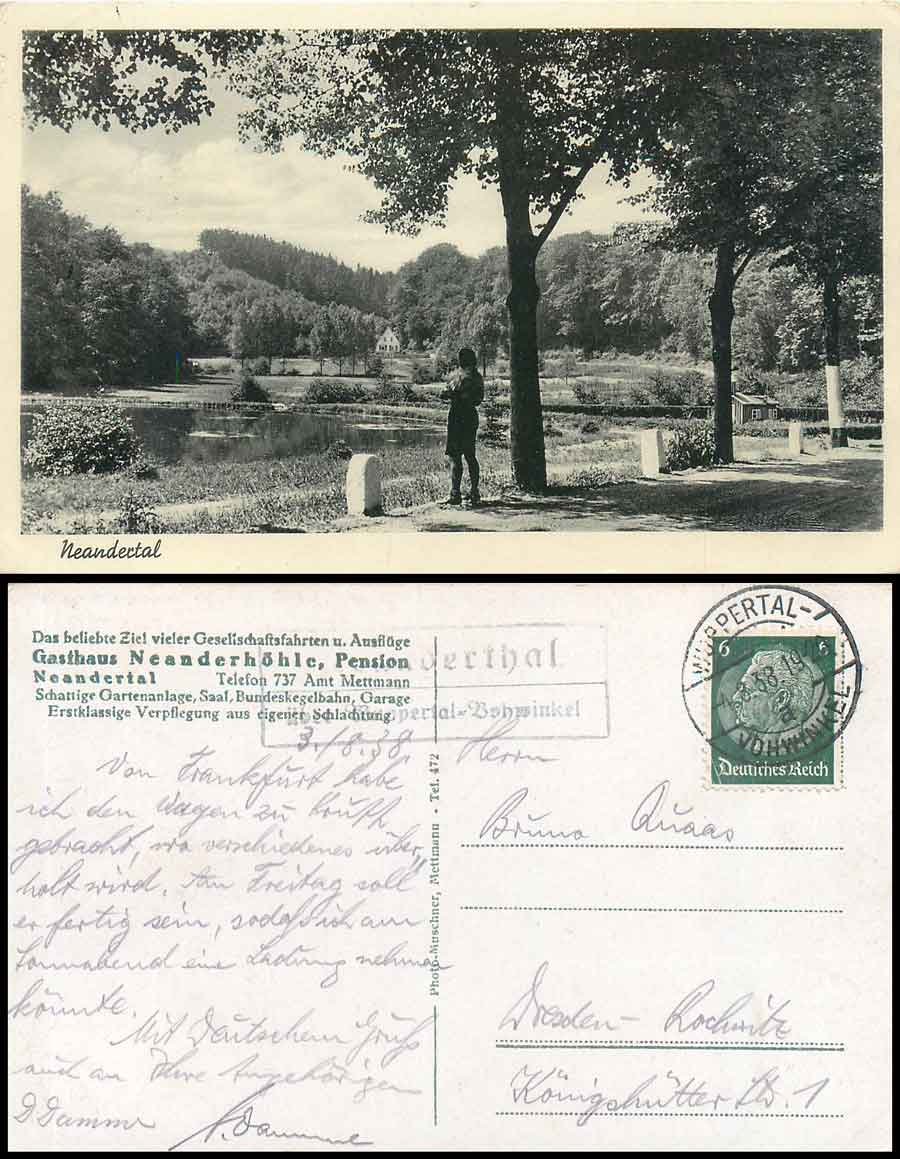 Neandertal
Das beliebte Ziel vieler Gesellschaftsfahrten u. Ausflüge
Gasthaus Neanderhöhle, Pension
Neandertal Telefon 737 Amt Mettmann
Schattige Gartenanlage, Saal, Bundeskegelbahn, Garage
Erstklassige Verpflegung aus eigener Schlachtung.
derthal
über Wuppertal-Vohwinkel
3./8.38
Von Frankfurt habe
ich den Wagen zu
gebracht, wo verschiedenes über,
holt wird. Am Freitag soll
er fertig sein, sodaß ich am
Sonnabend eine Ladung nehmen
könnte.
Mit Deutschem Gruß
auch an Ihre Angehörigen
D Damme
Damme
Photo-Muschner, Mettmann • Tel. 472
WUPPERTAL-
VOHWINKEL
a
6 6
Deutsches Reich
Herrn
Bruno Quaas
Dresden- Rochwitz
Königshütter Str. 1